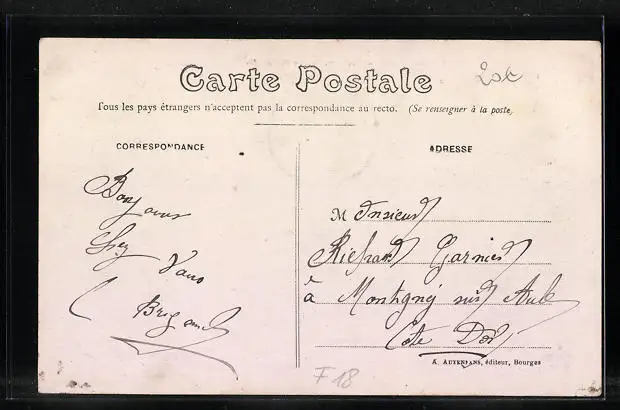 Carte Postale
Tous les pays étrangers n'acceptent pas la correspondance au recto. (Se renseigner à la poste)
CORRESPONDANCE
ADRESSE
Bonjour
Chez
Vous
Monsieur
Garnier
à Montigny sur Aube
Cote D'or
A. AUXENFANS, éditeur, Bourges
F 18